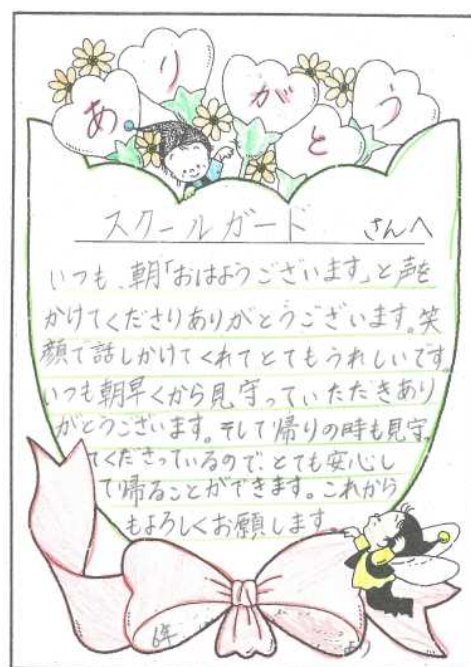 ありがとう
スクールガード さんへ
いつも、朝「おはようございます」と声を
かけてくださりありがとうございます。笑
顔で話しかけてくれてとてもうれしいです。
いつも朝早くから見守っていただきあり
がとうございます。そして帰りの時も見守っ
てくださっているので、とても安心し
て帰ることができます。これから
もよろしくお願します
6年 より